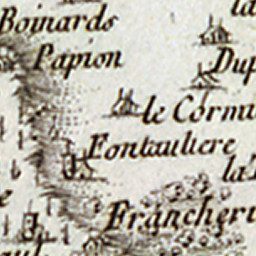 Boinards
la
Papion
Dup
le Cormi
Fontauliere
la
Francheri